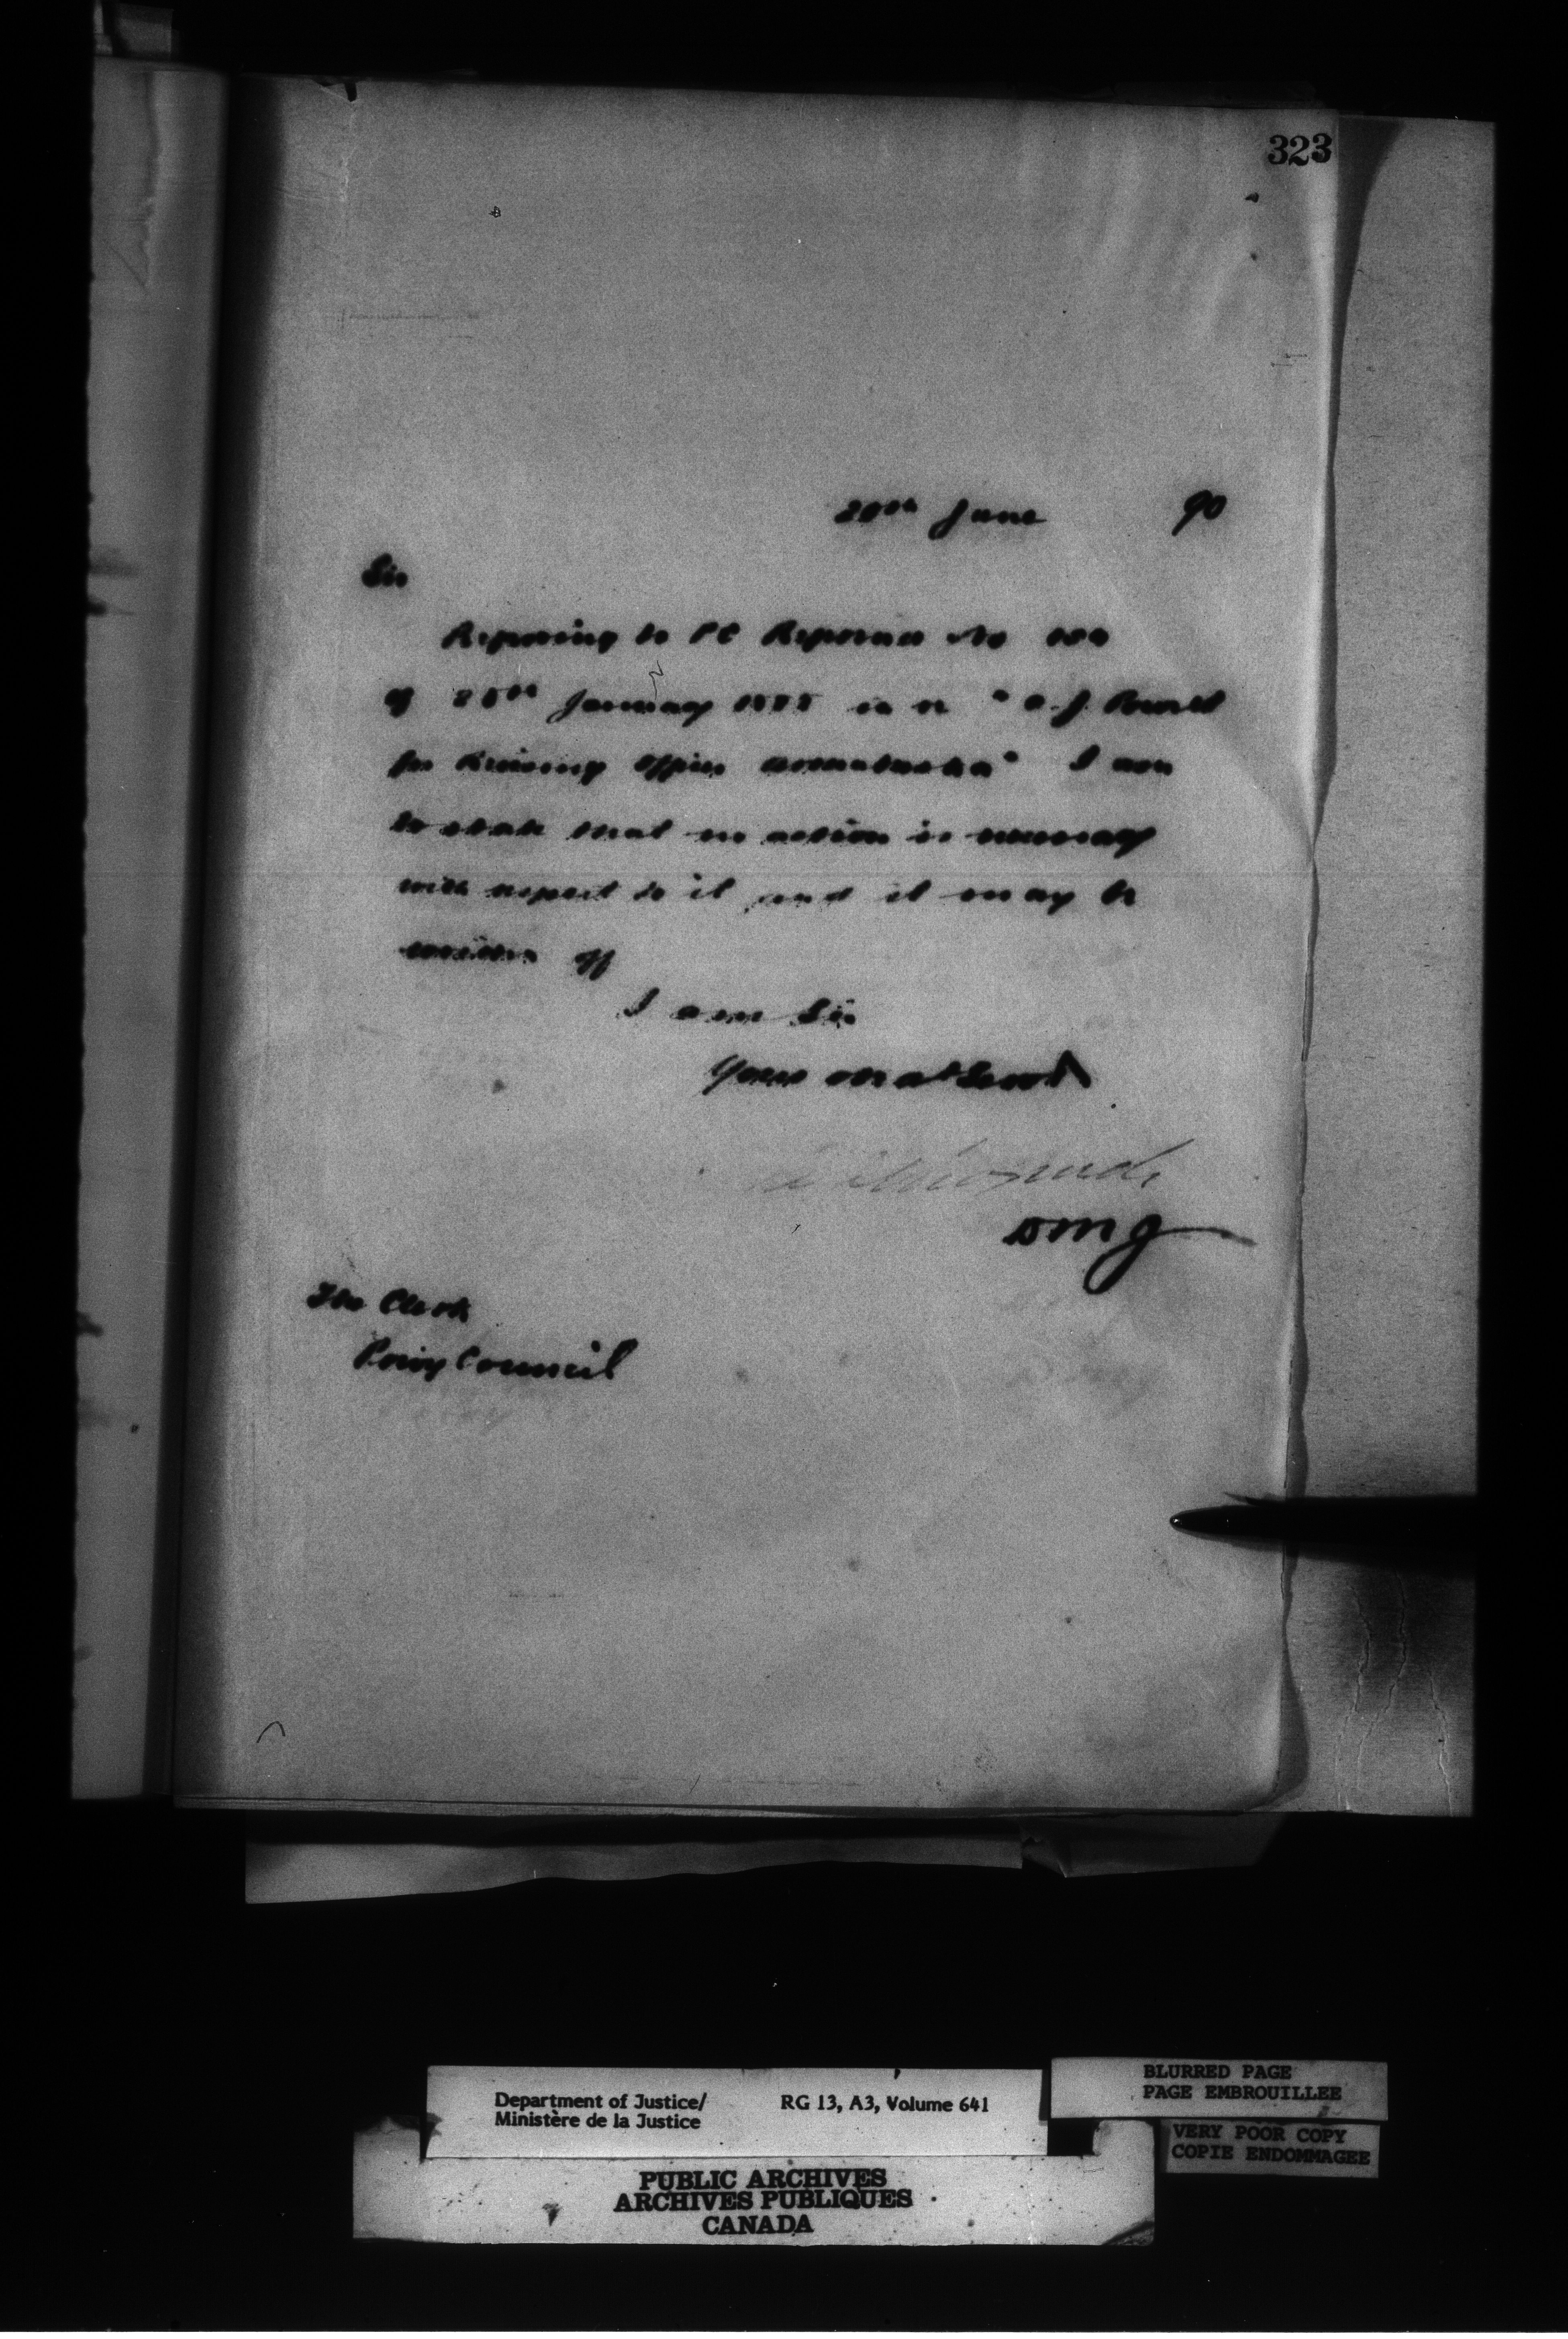 323
June 90
Sir
Referring to PC Reference No
of January 1888 in re "
for Revising Officer I am
to state that no action is necessary
with respect to it and it may be
written off
I am Sir
Your
DMJ
The Clerk
Privy Council
Department of Justice/ RG 13, A3, Volume 641
Ministère de la Justice
BLURRED PAGE
PAGE EMBROUILLEE
VERY POOR COPY
COPIE ENDOMMAGEE
PUBLIC ARCHIVES
ARCHIVES PUBLIQUES
CANADA